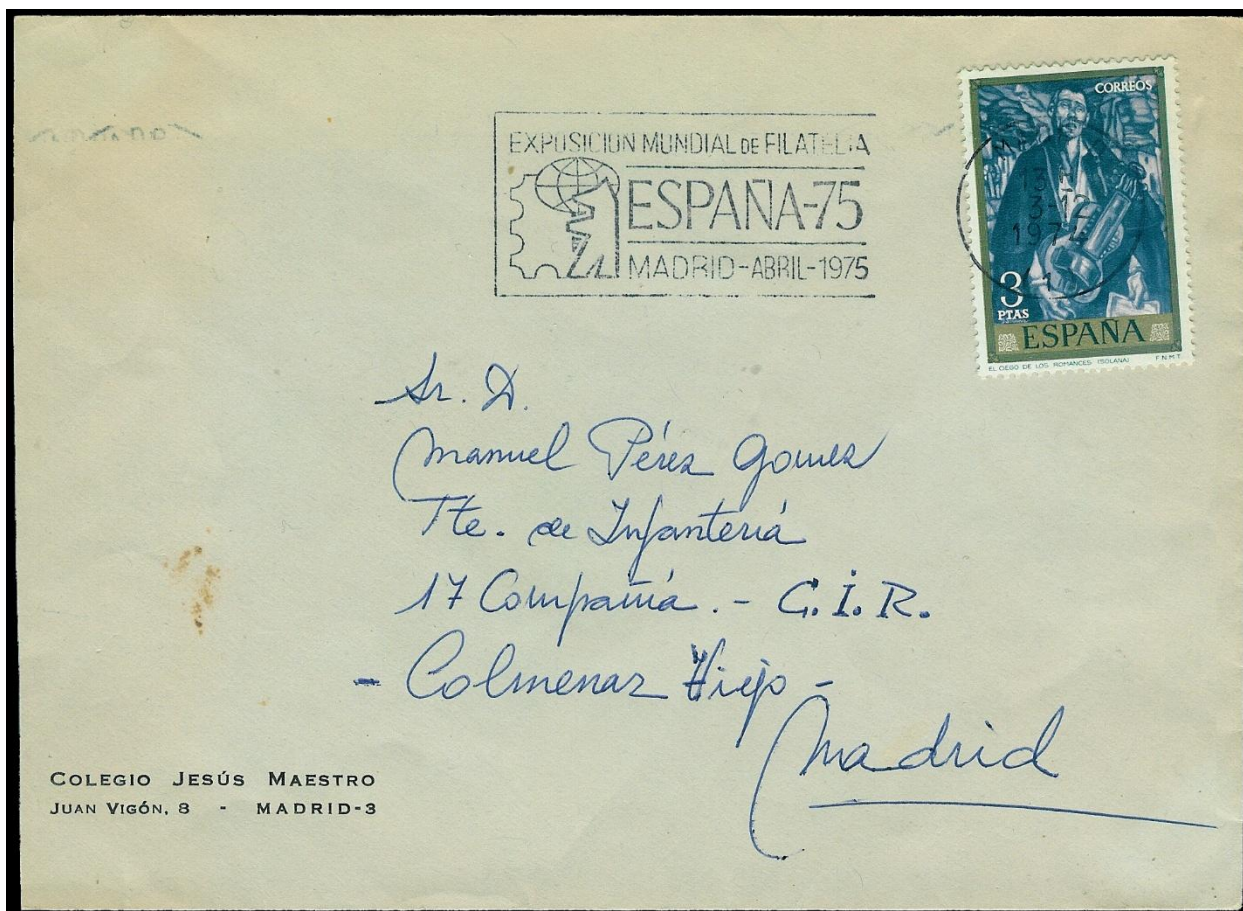 EXPOSICION MUNDIAL DE FILATELIA
ESPAÑA-75
MADRID-ABRIL-1975
CORREOS
13
3.12
1974
1
3
PTAS
ESPAÑA
EL CIEGO DE LOS ROMANCES (SOLANA) F.N.M.T.
Sr. D.
Manuel Pérez Gomez
Tte. de Infantería
17 Compañía. - C.I.R.
- Colmenar Viejo -
Madrid
COLEGIO JESÚS MAESTRO
JUAN VIGÓN, 8 - MADRID-3